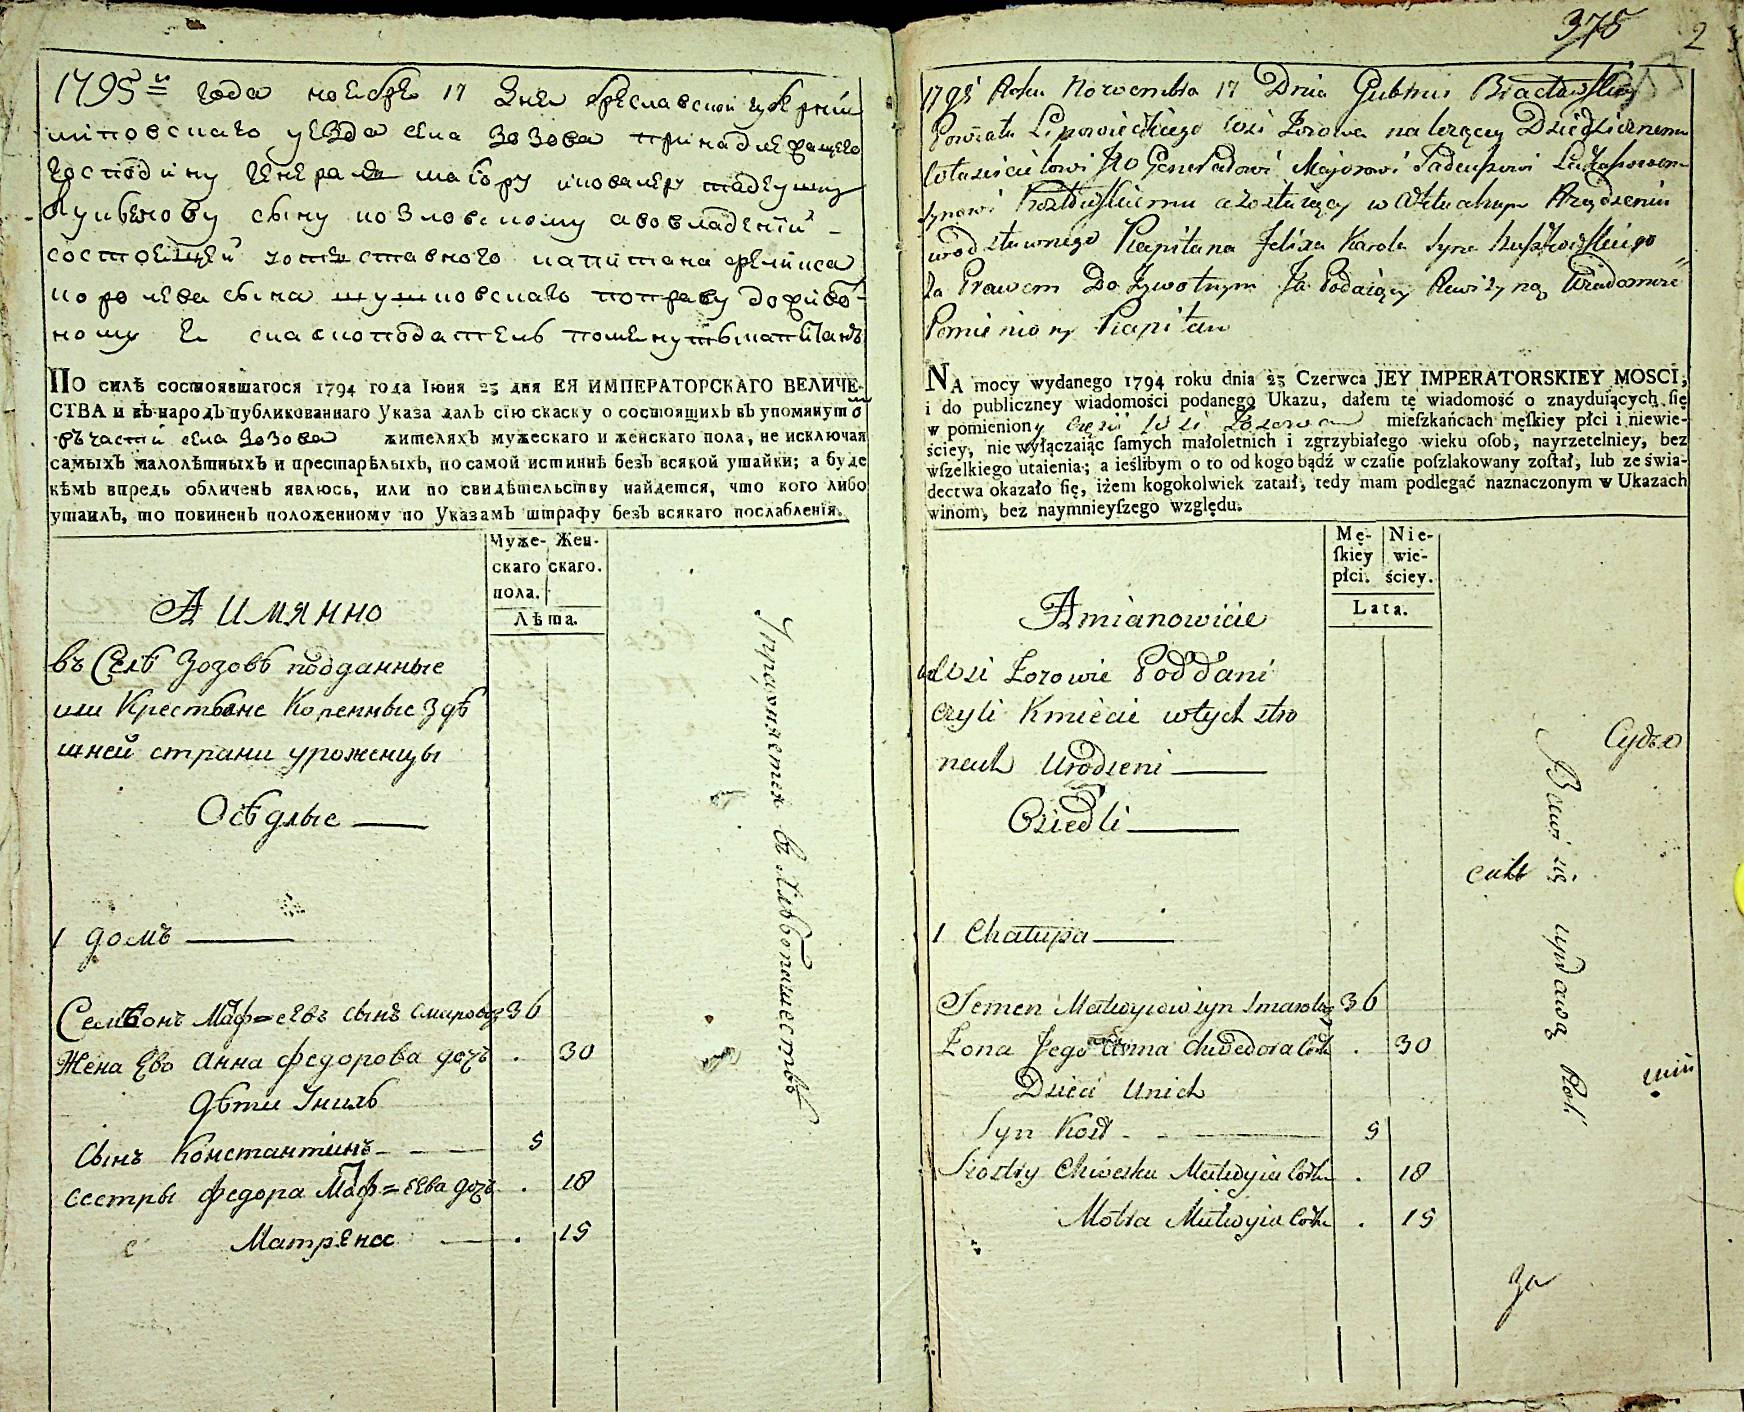 375
2
1795 года ноебре 17 дня Бреславской губернии
липовского уезда села Зозова принадлежащего
господину генерал маиору и ковалеру тадеушу
сыну козловскому а во владении
состоящей капитана феликса
сына поправу доживо-
ному
ПО силѣ состоявшагося 1794 года Іюня 23 дня ЕЯ ИМПЕРАТОРСКАГО ВЕЛИЧЕ-
СТВА и въ народъ публикованнаго Указа далъ сію скаску о состоящихъ въ упомянуто
въ части села Зозова жителяхъ мужескаго и женскаго пола, не исключая
самыхъ малолѣтныхъ и престарѣлыхъ, по самой истиннѣ безъ всякой утайки; а буде
кѣмъ впредь обличенъ явлюсь, или по свидѣтельству найдется, что кого либо
утаилъ, то повиненъ положенному по Указамъ штрафу безъ всякаго послабленія.
Муже- Жен-
скаго скаго.
пола.
Лѣта.
А имянно
въ Селѣ Зозовѣ подданные
или Крестьяне Коренные Здѣ
шней страни уроженцы
Осѣдлые
1 домъ
Семіонъ Маф=еевъ сынъ 36
Жена Ево Анна Федорова дочь . 30
дѣти Ихъ
Сынъ Константинъ 5
сестры Федора Маф=еева дочь . 18
Матрена . 15
Упражняется въ хлѣбопашествѣ
1795 Roku Novembra 17 Dnia Gubernii Bracławskiey
Powiatu Lipowieckiego wsi Zozowa należącey Dziedzicznemu
Generałowi Majorowi Tadeuszowi
synowi Kozłowskiemu a zostaiący w Aktualnym Rządzeniu
Kapitana Felixa Karola syna
za Prawem Dożywotnym Ja Podaiący Rewizyną Wiadomość
Pomieniony Kapitan
NA mocy wydanego 1794 roku dnia 23 Czerwca JEY IMPERATORSKIEY MOSCI,
i do publiczney wiadomości podanego Ukazu, dałem tę wiadomość o znayduiących się
w pomieniony części wsi Zozowa mieſzkańcach męſkiey płci i niewie-
ściey, nie wyłączaiąc ſamych małoletnich i zgrzybiałego wieku oſob, nayrzetelniey, bez
wſzelkiego utaienia; a ieślibym o to od kogo bądź w czaſie poſzlakowany zoſtał, lub ze świa-
dectwa okazało ſię, iżem kogokolwiek zataił, tedy mam podlegać naznaczonym w Ukazach
winom, bez naymnieyſzego względu.
Mę- Nie-
ſkiey wie-
płci. ściey.
Lata.
Amianowicie
we Wsi Zozowie Poddani
czyli Kmiecie w tych stro
nach Urodzeni
Osiedli
1 Chałupa
Semen Matwyiow syn 36
Zona Jego Anna Chwedora Córka . 30
Dzieci U nich
Syn Kost 5
Siostry Chweśka Matwyia Córka . 18
Motra Matwyia Córka . 15
Bawi się uprawą Roli
Судья
за